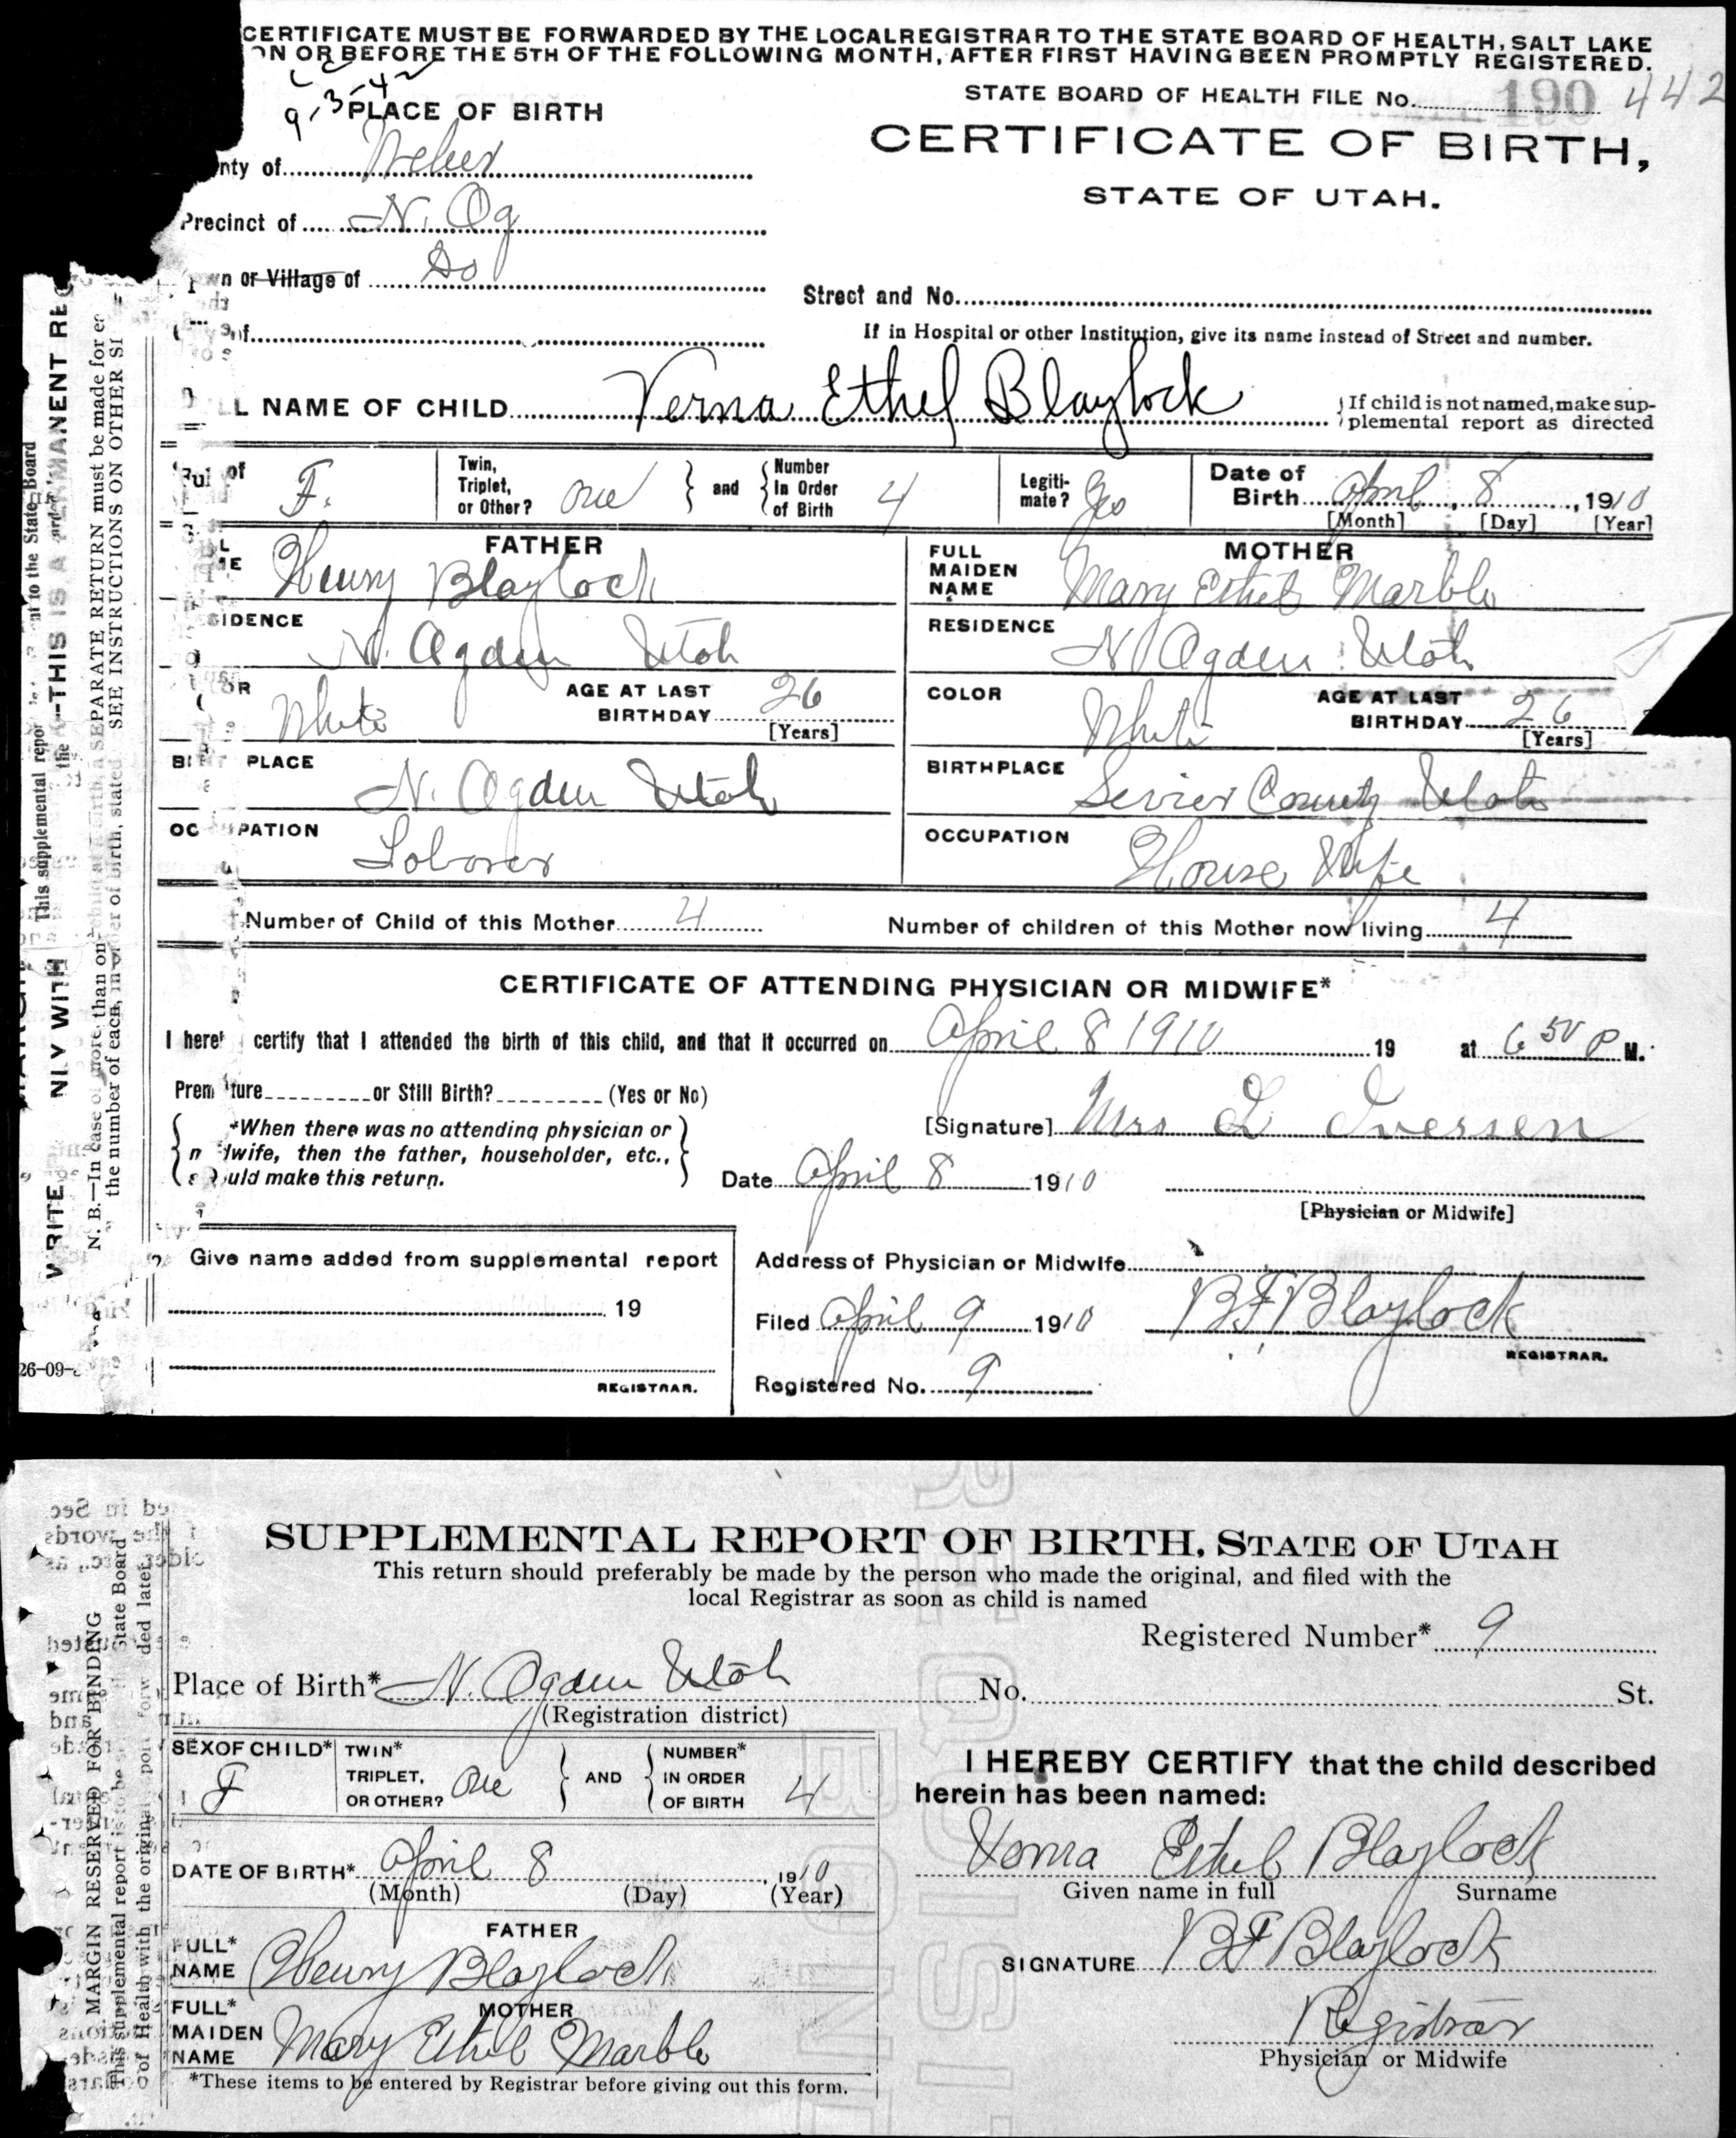 CERTIFICATE MUST BE FORWARDED BY THE LOCAL REGISTRAR TO THE STATE BOARD OF HEALTH, SALT LAKE
ON OR BEFORE THE 5TH OF THE FOLLOWING MONTH, AFTER FIRST HAVING BEEN PROMPTLY REGISTERED.
9-3-42
STATE BOARD OF HEALTH FILE No. 190 442
PLACE OF BIRTH
CERTIFICATE OF BIRTH,
STATE OF UTAH.
nty of Weber
Precinct of N. Og
wn or Village of Do
Street and No.
of
If in Hospital or other Institution, give its name instead of Street and number.
L NAME OF CHILD Verna Ethel Blaylock
If child is not named, make sup-
plemental report as directed
of F.
Twin, Triplet, or Other? one and Number In Order of Birth 4
Legiti-mate? Yes
Date of Birth April 8, 1910
[Month] [Day] [Year]
FATHER
Henry Blaylock
MOTHER
FULL MAIDEN NAME Mary Ethel Marble
SIDENCE N. Ogden Utah
RESIDENCE N Ogden Utah
OR White AGE AT LAST BIRTHDAY 26 [Years]
COLOR White AGE AT LAST BIRTHDAY 26 [Years]
BI PLACE N. Ogden Utah
BIRTHPLACE Sevier County Utah
OC PATION Laborer
OCCUPATION House Wife
Number of Child of this Mother 4 Number of children of this Mother now living 4
CERTIFICATE OF ATTENDING PHYSICIAN OR MIDWIFE*
I here certify that I attended the birth of this child, and that it occurred on April 8 1910 19 at 6 50 P M.
Prem ture or Still Birth? (Yes or No)
*When there was no attending physician or
m dwife, then the father, householder, etc.,
s ould make this return.
[Signature] Mrs L Iversen
Date April 8 1910
[Physician or Midwife]
Give name added from supplemental report
19
REGISTRAR.
Address of Physician or Midwife
Filed April 9 1910 BF Blaylock
REGISTRAR.
Registered No. 9
This supplemental repor
nt to the State Board
WRITE NLY WITH
THIS IS A PERMANENT RE
N. B.—In case of more than on SEPARATE RETURN must be made for e
the number of each, in order of birth, stated SEE INSTRUCTIONS ON OTHER SI
26-09-
SUPPLEMENTAL REPORT OF BIRTH, STATE OF UTAH
This return should preferably be made by the person who made the original, and filed with the
local Registrar as soon as child is named
Registered Number* 9
Place of Birth* N. Ogden Utah No. St.
(Registration district)
SEX OF CHILD* F
TWIN* TRIPLET, OR OTHER? One AND NUMBER* IN ORDER OF BIRTH 4
DATE OF BIRTH* April 8, 1910
(Month) (Day) (Year)
FATHER
FULL* NAME Henry Blaylock
MOTHER
FULL* MAIDEN NAME Mary Ethel Marble
*These items to be entered by Registrar before giving out this form.
I HEREBY CERTIFY that the child described
herein has been named:
Verna Ethel Blaylock
Given name in full Surname
SIGNATURE BF Blaylock
Registrar
Physician or Midwife
MARGIN RESERVED FOR BINDING
This supplemental report is to be State Board
of Health with the original report forw ded later.